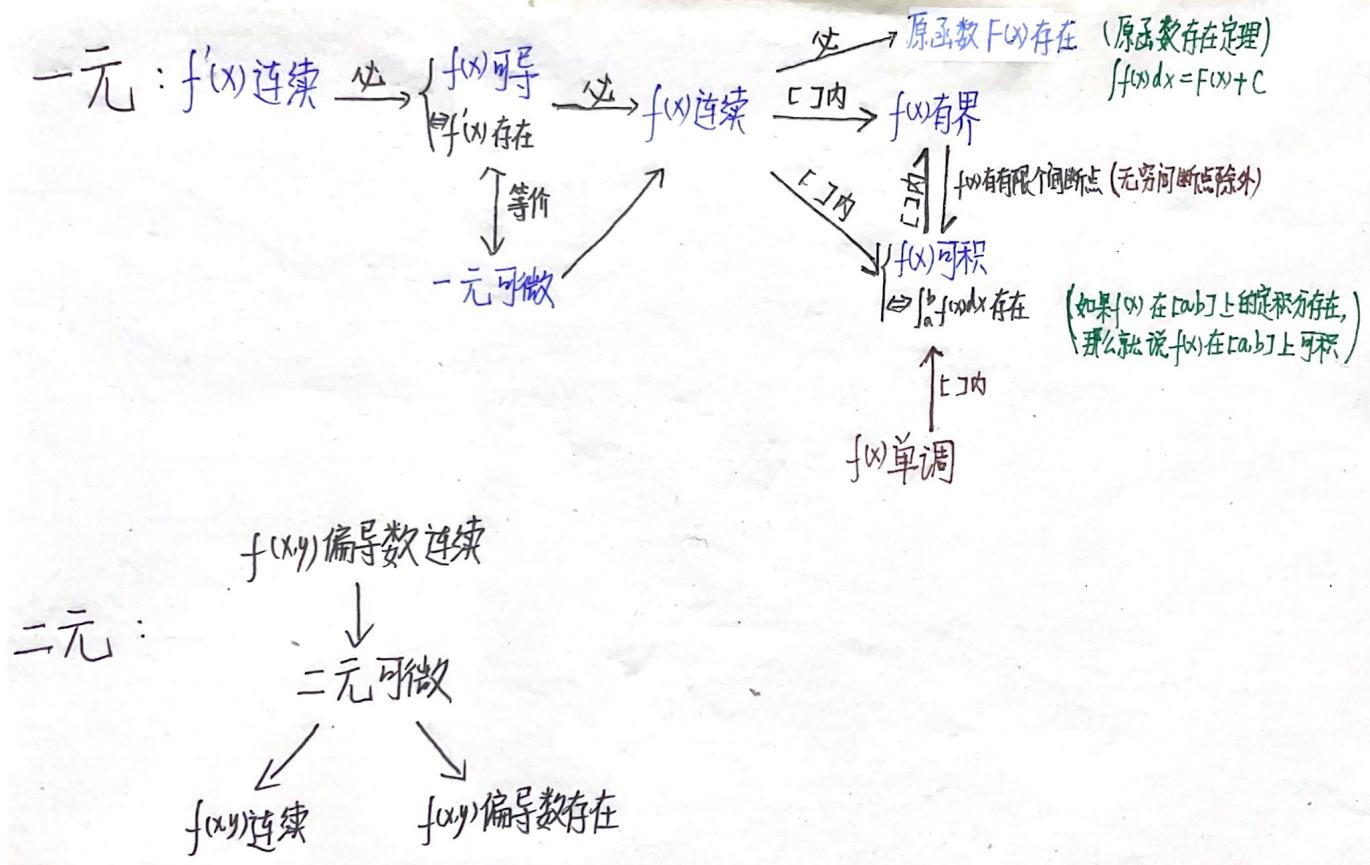 一元：f'(x)连续
必
f(x)可导
⇔f'(x)存在
必
f(x)连续
必
原函数F(x)存在
(原函数存在定理)
∫f(x)dx=F(x)+C
[ ]内
f(x)有界
[ ]内
[ ]内
f(x)有有限个间断点(无穷间断点除外)
等价
一元可微
f(x)可积
⇔∫ₐᵇf(x)dx存在
(如果f(x)在[a,b]上的定积分存在,
那么就说f(x)在[a,b]上可积)
[ ]内
f(x)单调
f(x,y)偏导数连续
二元：
二元可微
f(x,y)连续
f(x,y)偏导数存在